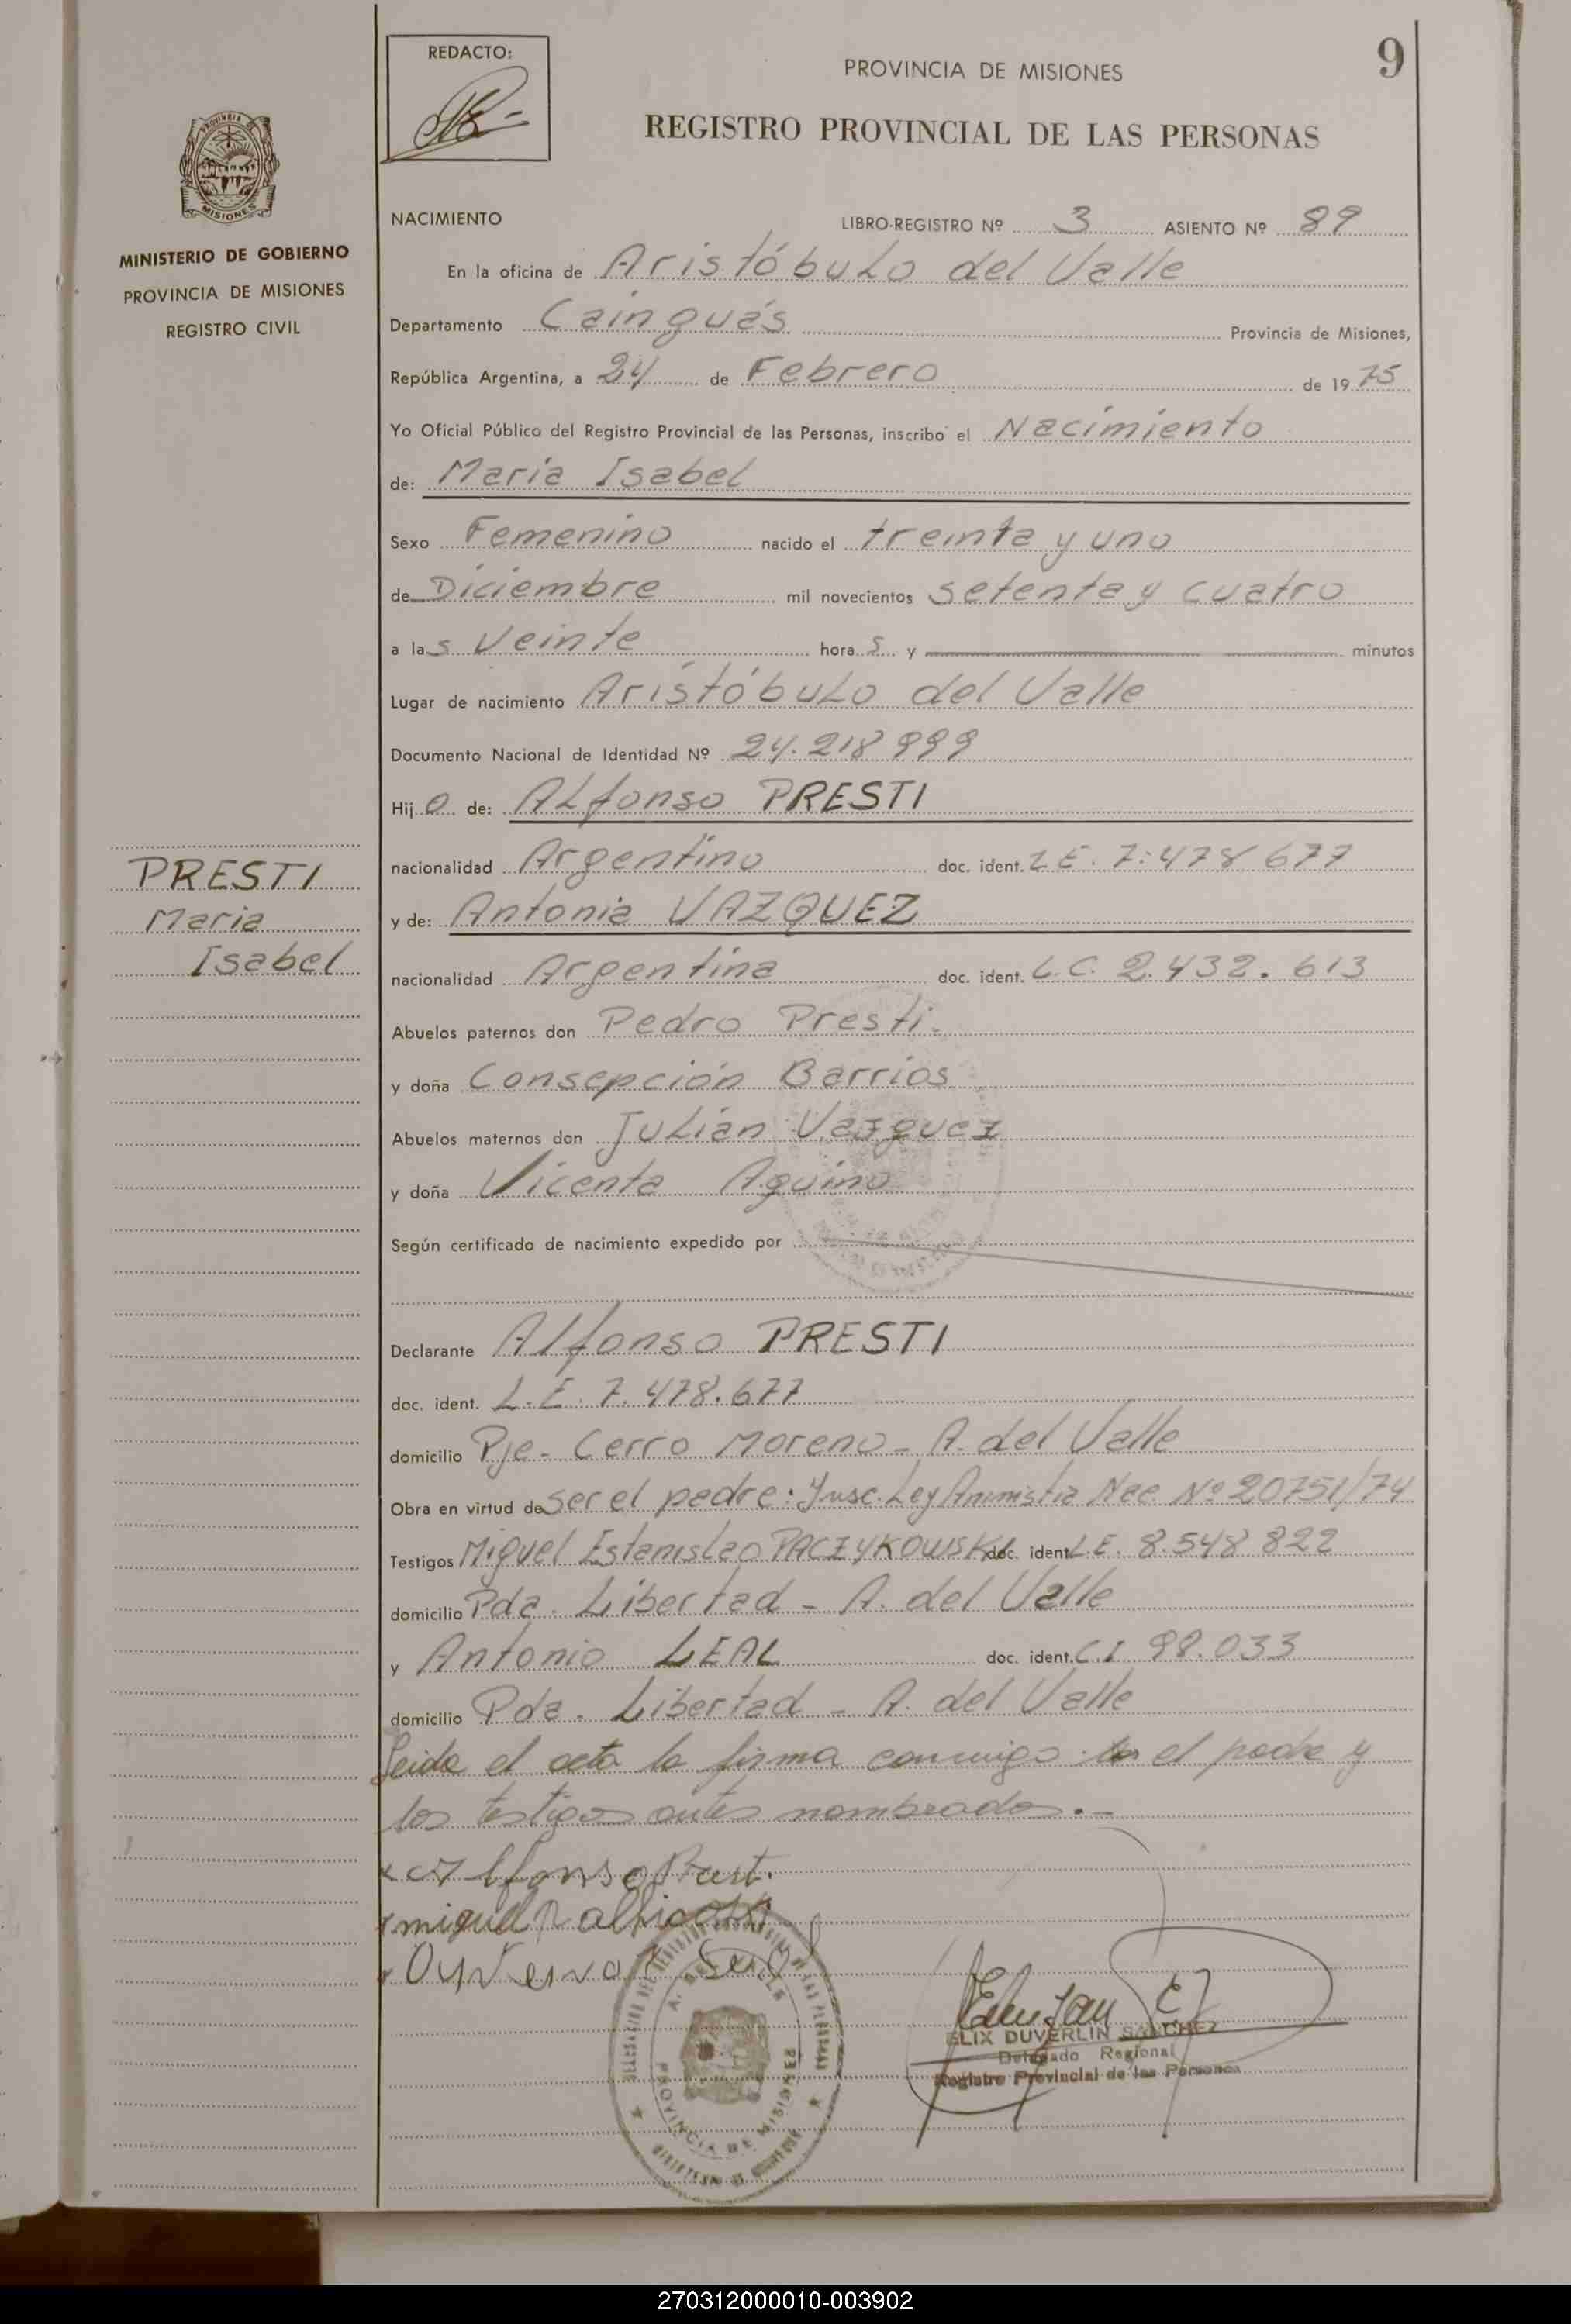 REDACTO:
PROVINCIA DE MISIONES
9
REGISTRO PROVINCIAL DE LAS PERSONAS
MISIONES
MINISTERIO DE GOBIERNO
PROVINCIA DE MISIONES
REGISTRO CIVIL
NACIMIENTO LIBRO-REGISTRO Nº 3 ASIENTO Nº 89
En la oficina de Aristóbulo del Valle
Departamento Cainguás Provincia de Misiones,
República Argentina, a 24 de Febrero de 1975
Yo Oficial Público del Registro Provincial de las Personas, inscribo el Nacimiento
de: Maria Isabel
Sexo Femenino nacido el treinta y uno
de Diciembre mil novecientos setenta y cuatro
a las veinte horas y minutos
Lugar de nacimiento Aristóbulo del Valle
Documento Nacional de Identidad Nº 24.218 999
Hijo de: Alfonso PRESTI
nacionalidad Argentino doc. ident. L E. 7.478 677
y de: Antonia VAZQUEZ
nacionalidad Argentina doc. ident. L.C. 2.432.613
Abuelos paternos don Pedro Presti.
y doña Consepción Barrios
Abuelos maternos don Julián Vazquez
y doña Vicenta Aquino
Según certificado de nacimiento expedido por
Declarante Alfonso PRESTI
doc. ident. L.E. 7.478.677
domicilio Pje- Cerro Moreno - A. del Valle
Obra en virtud de ser el padre: Insc. Ley Amnistia Nac. Nº 20751/74
Testigos Miguel Estanislao PACZYKOWSKI doc. ident. L.E. 8.548 822
domicilio Pda. Libertad - A. del Valle
y Antonio LEAL doc. ident. C.I. 98.033
domicilio Pda. Libertad - A. del Valle
Leida el acta la firma conmigo el padre y
los testigos antes nombrados.-
PRESTI
Maria
Isabel
Alfonso
miguel
PROVINCIA DE MISIONES
ELIX DUVERLIN SANCHEZ
Delegado Regional
Registro Provincial de las Personas
270312000010-003902